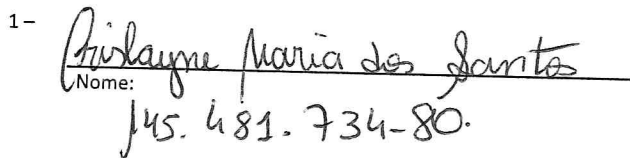 1- Crislayne Maria dos Santos
Nome:
145.481.734-80.